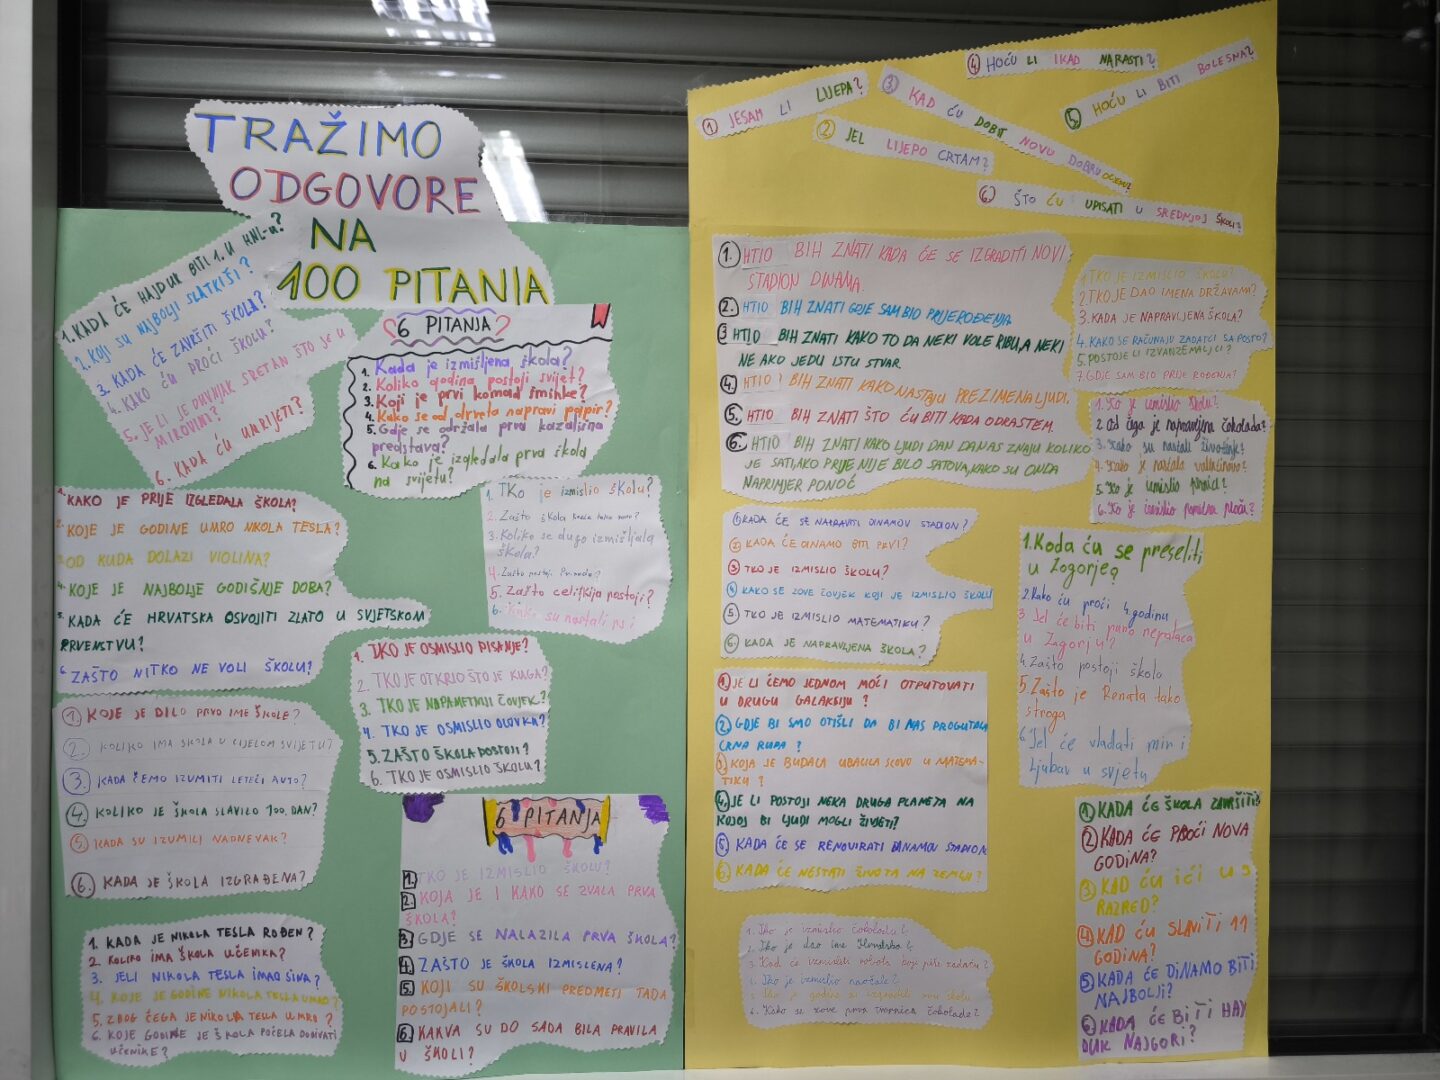 TRAŽIMO
ODGOVORE
NA
100 PITANJA
1. KADA ĆE HAJDUK BITI 1. U HNL-u?
2. KOJI SU NAJBOLJI SLATKIŠI?
3. KADA ĆE ZAVRŠITI ŠKOLA?
4. KAKO ĆU PROĆI ŠKOLU?
5. JE LI JE DUVNJAK SRETAN ŠTO JE U
MIROVINI?
6. KADA ĆU UMRIJETI?
6 PITANJA
1. Kada je izmišljena škola?
2. Koliko godina postoji svijet?
3. Koji je prvi komad šminke?
4. Kako se od drveta napravi papir?
5. Gdje se održala prva kazališna
predstava?
6. Kako je izgledala prva škola
na svijetu?
1. KAKO JE PRIJE IZGLEDALA ŠKOLA?
2. KOJE JE GODINE UMRO NKOLA TESLA?
3. OD KUDA DOLAZI VIOLINA?
4. KOJE JE NAJBOLJE GODIŠNJE DOBA?
5. KADA ĆE HRVATSKA OSVOJITI ZLATO U SVJETSKOM
PRVENSTVU?
6. ZAŠTO NITKO NE VOLI ŠKOLU?
1. TKO je izmislio školu?
2. Zašto škola
3. Koliko se dugo izmišljala
škola?
4. Zašto postoji
5. Zašto celifkija postoji?
6. Kako su nastali psi
1. TKO JE OSMISLIO PISANJE?
2. TKO JE OTKRIO ŠTO JE KUGA?
3. TKO JE NAPAMETNIJI ČOVJEK?
4. TKO JE OSMISLIO OLOVKA?
5. ZAŠTO ŠKOLA POSTOJI?
6. TKO JE OSMISLIO ŠKOLU?
1. KOJE JE BILO PRVO IME ŠKOLE?
2. KOLIKO IMA ŠKOLA U CIJELOM SVIJETU?
3. KADA ĆEMO IZUMITI LETEĆI AUTO?
4. KOLIKO JE ŠKOLA SLAVILO 100. DAN?
5. KADA SU IZUMILI NADNEVAK?
6. KADA JE ŠKOLA IZGRAĐENA?
6 PITANJA
1. TKO JE IZMISLIO ŠKOLU?
2. KOJA JE I KAKO SE ZVALA PRVA
ŠKOLA?
3. GDJE SE NALAZILA PRVA ŠKOLA?
4. ZAŠTO JE ŠKOLA IZMISLENA?
5. KOJI SU ŠKOLSKI PREDMETI TADA
POSTOJALI?
6. KAKVA SU DO SADA BILA PRAVILA
U ŠKOLI?
1. KADA JE NIKOLA TESLA ROĐEN?
2. KOLIKO IMA ŠKOLA UČENIKA?
3. JELI NIKOLA TESLA IMAO SINA?
4. KOJE JE GODINE NIKOLA TESLA UMRO?
5. ZBOG ČEGA JE NIKOLA TESLA UMRO?
6. KOJE GODINE JE ŠKOLA POČELA DOBIVATI
UČENIKE?
1 JESAM LI LIJEPA?
2 JEL LIJEPO CRTAM?
3 KAD ĆU DOBIT NOVU DOBRU OCJENU?
4 HOĆU LI IKAD NARASTI?
5 HOĆU LI BITI BOLESNA?
6 ŠTO ĆU UPISATI U SREDNJOJ ŠKOLI?
1. HTIO BIH ZNATI KADA ĆE SE IZGRADITI NOVI
STADION DINAMA.
2. HTIO BIH ZNATI GDJE SAM BIO PRIJE ROĐENJA
3 HTIO BIH ZNATI KAKO TO DA NEKI VOLE RIBU, A NEKI
NE AKO JEDU ISTU STVAR.
4. HTIO BIH ZNATI KAKO NASTAJU PREZIMENA LJUDI.
5. HTIO BIH ZNATI ŠTO ĆU BITI KADA ODRASTEM.
6. HTIO BIH ZNATI KAKO LJUDI DAN DANAS ZNAJU KOLIKO
JE SATI, AKO PRIJE NIJE BILO SATOVA, KAKO SU ONDA
NAPRIMJER PONOĆ
1 TKO JE IZMISLIO ŠKOLU?
2. TKO JE DAO IMENA DRŽAVAMA?
3. KADA JE NAPRAVLJENA ŠKOLA?
4. KAKO SE RAČUNAJU ZADATCI SA POSTO?
5. POSTOJE LI IZVANZEMALJCI?
7. GDJE SAM BIO PRIJE ROĐENJA?
1. Tko je izmislio školu?
2. Od čega je napravljena čokolada?
3. Kako su nastali životinje?
4. Kako je nastalo valentinovo?
5. Ko je izmislio pernicu?
6. Ko je izmislio pametnu ploču?
1 KADA ĆE SE NAPRAVITI DINAMOV STADION?
2 KADA ĆE DINAMO BITI PRVI?
3 TKO JE IZMISLIO ŠKOLU?
4 KAKO SE ZOVE ČOVJEK KOJI JE IZMISLIO ŠKOLU
5 TKO JE IZMISLIO MATEMATIKU?
6 KADA JE NAPRAVLJENA ŠKOLA?
1. Kada ću se preseliti
u Zagorje?
2. Kako ću proći 4. godinu
3 Jel će biti puno nepotača
u Zagorju?
4. Zašto postoji škola
5. Zašto je Renata tako
stroga
6 Jel će vladati mir i
ljubav u svjetu
1 JE LI ĆEMO JEDNOM MOĆI OTPUTOVATI
U DRUGU GALAKSIJU?
2 GDJE BI SMO OTIŠLI DA BI NAS PROGUTALA
CRNA RUPA?
3 KOJA JE BUDALA UBACILA SLOVO U MATEMA-
TIKU?
4 JE LI POSTOJI NEKA DRUGA PLANETA NA
KOJOJ BI LJUDI MOGLI ŽIVJETI?
5 KADA ĆE SE RENOVIRATI DINAMOV STADION
6 KADA ĆE NESTATI ŽIVOTA NA ZEMLJI?
1 KADA ĆE ŠKOLA ZAVRŠITI?
2 KADA ĆE PROĆI NOVA
GODINA?
3 KAD ĆU IĆI U 5
RAZRED?
4 KAD ĆU SLAVITI 11
GODINA?
5 KADA ĆE DINAMO BITI
NAJBOLJI?
6 KADA ĆE BITI HAJ
DUK NAJGORI?
1. Tko je izmislio čokoladu?
2. Tko je dao ime Hrvatska?
3. Kad će izmisliti robota koji piše zadaću?
4. Tko je izmislio naočale?
5. godine se izgradili ovu školu
6. Kako se zove prva tvornica čokolade?